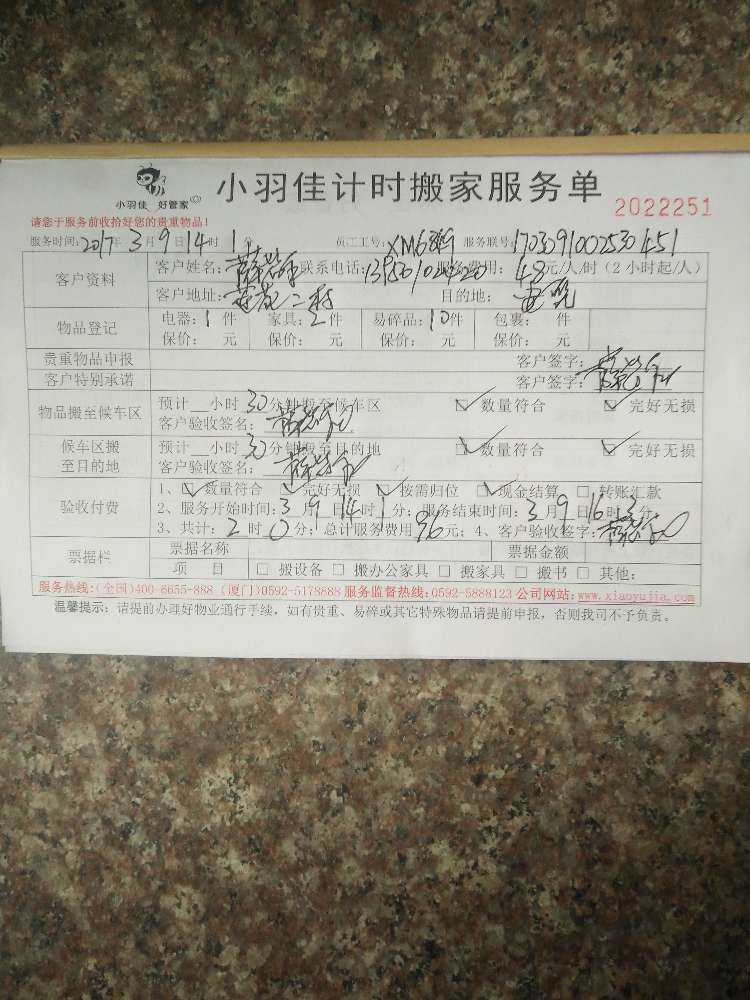 小羽佳 好管家
小羽佳计时搬家服务单
2022251
请您于服务前收拾好您的贵重物品!
服务时间:2017年3月9日14时1分 员工工号: 服务联号:
客户资料
客户姓名: 联系电话: 费用:48元/人/时(2小时起/人)
客户地址: 目的地:
物品登记
电器:1件 家具:2件 易碎品:10件 包裹: 件
保价: 元 保价: 元 保价: 元 保价: 元
贵重物品申报 客户签字:
客户特别承诺 客户签字:
物品搬至候车区
预计__小时30分钟搬至候车区 ☑数量符合 ☑完好无损
客户验收签名:
候车区搬至目的地
预计__小时30分钟搬至目的地 ☑数量符合 ☑完好无损
客户验收签名:
验收付费
1、☑数量符合 ☑完好无损 ☑按需归位 ☑现金结算 □转账汇款
2、服务开始时间:3月9日14时1分;服务结束时间:3月9日16时分;
3、共计:2时0分;总计服务费用96元;4、客户验收签字:
票据栏
票据名称 票据金额
项 目 □搬设备 □搬办公家具 □搬家具 □搬书 □其他:
服务热线:(全国)400-6655-888 (厦门)0592-5178888 服务监督热线:0592-5888123 公司网站:www.xiaoyujia.com
温馨提示:请提前办理好物业通行手续,如有贵重、易碎或其它特殊物品请提前申报,否则我司不予负责。